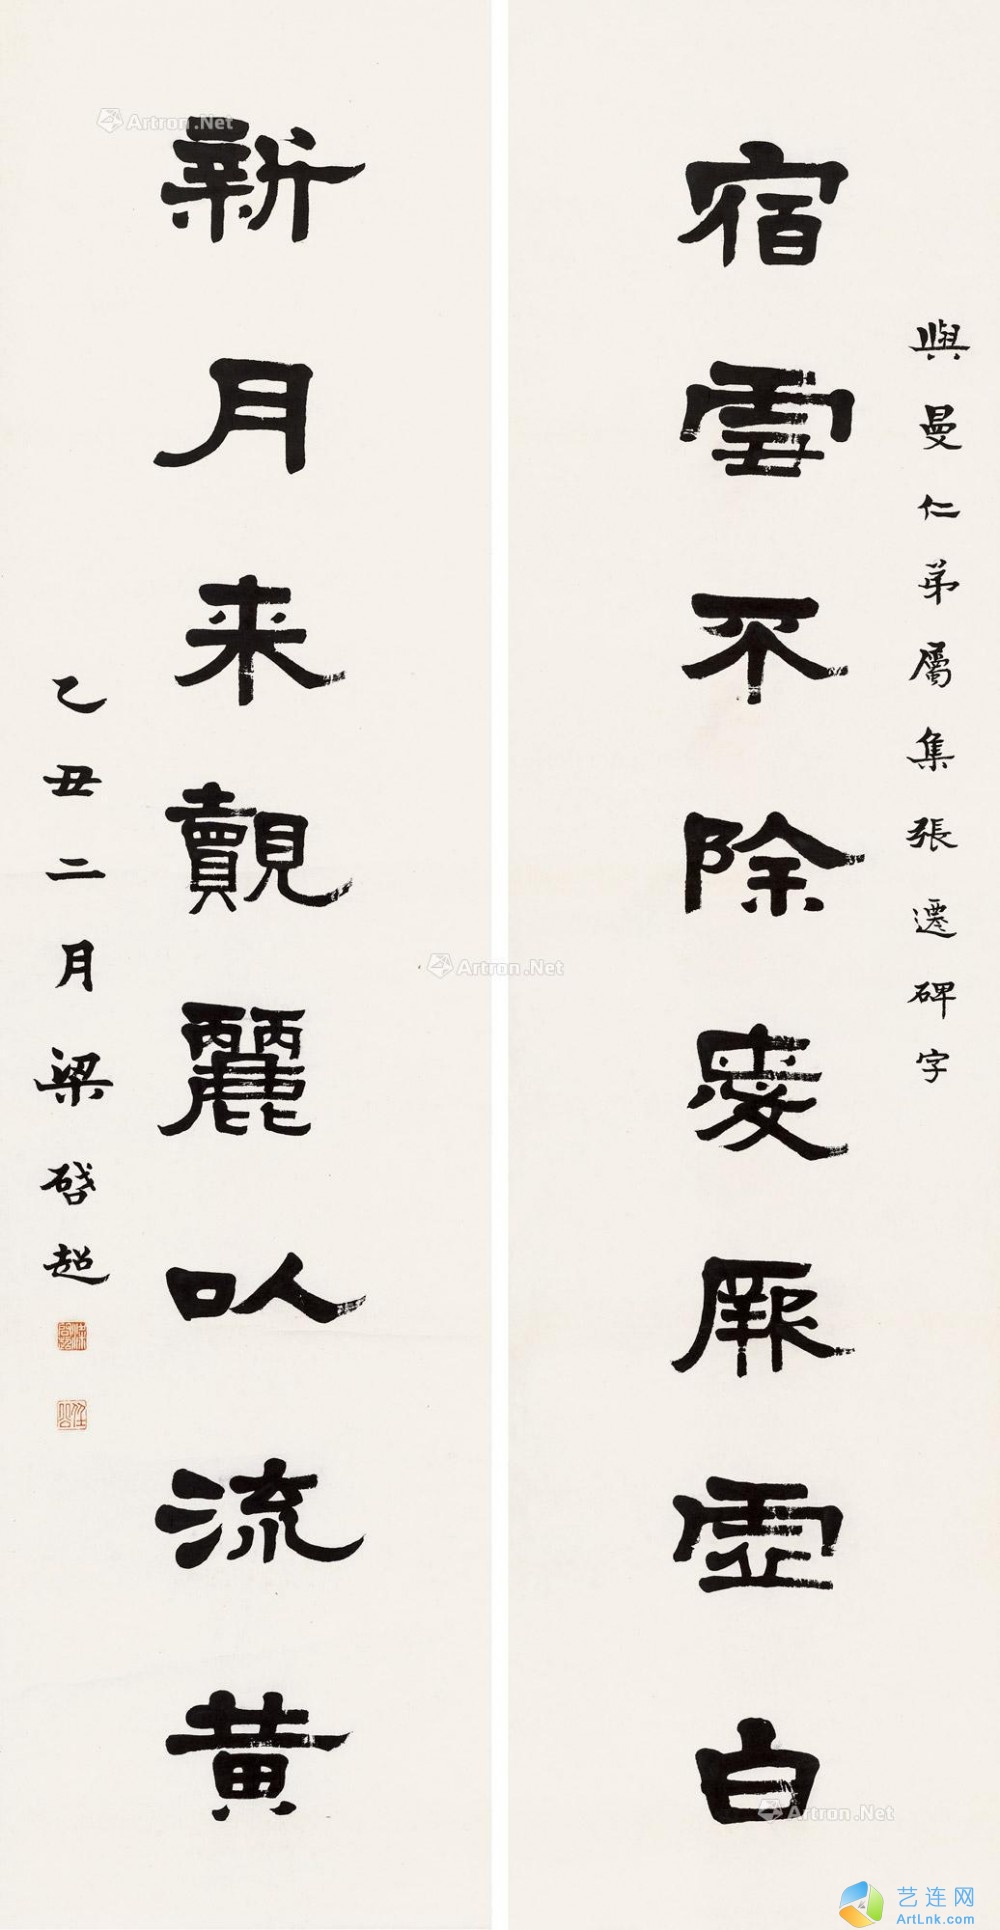 與曼仁弟屬集張遷碑字
宿雲不除愛厥虛白
新月来覿麗以流黄
乙丑二月梁啓超
任公
Artron.Net
Artron.Net
Artron.Net
艺连网
ArtLnk.com